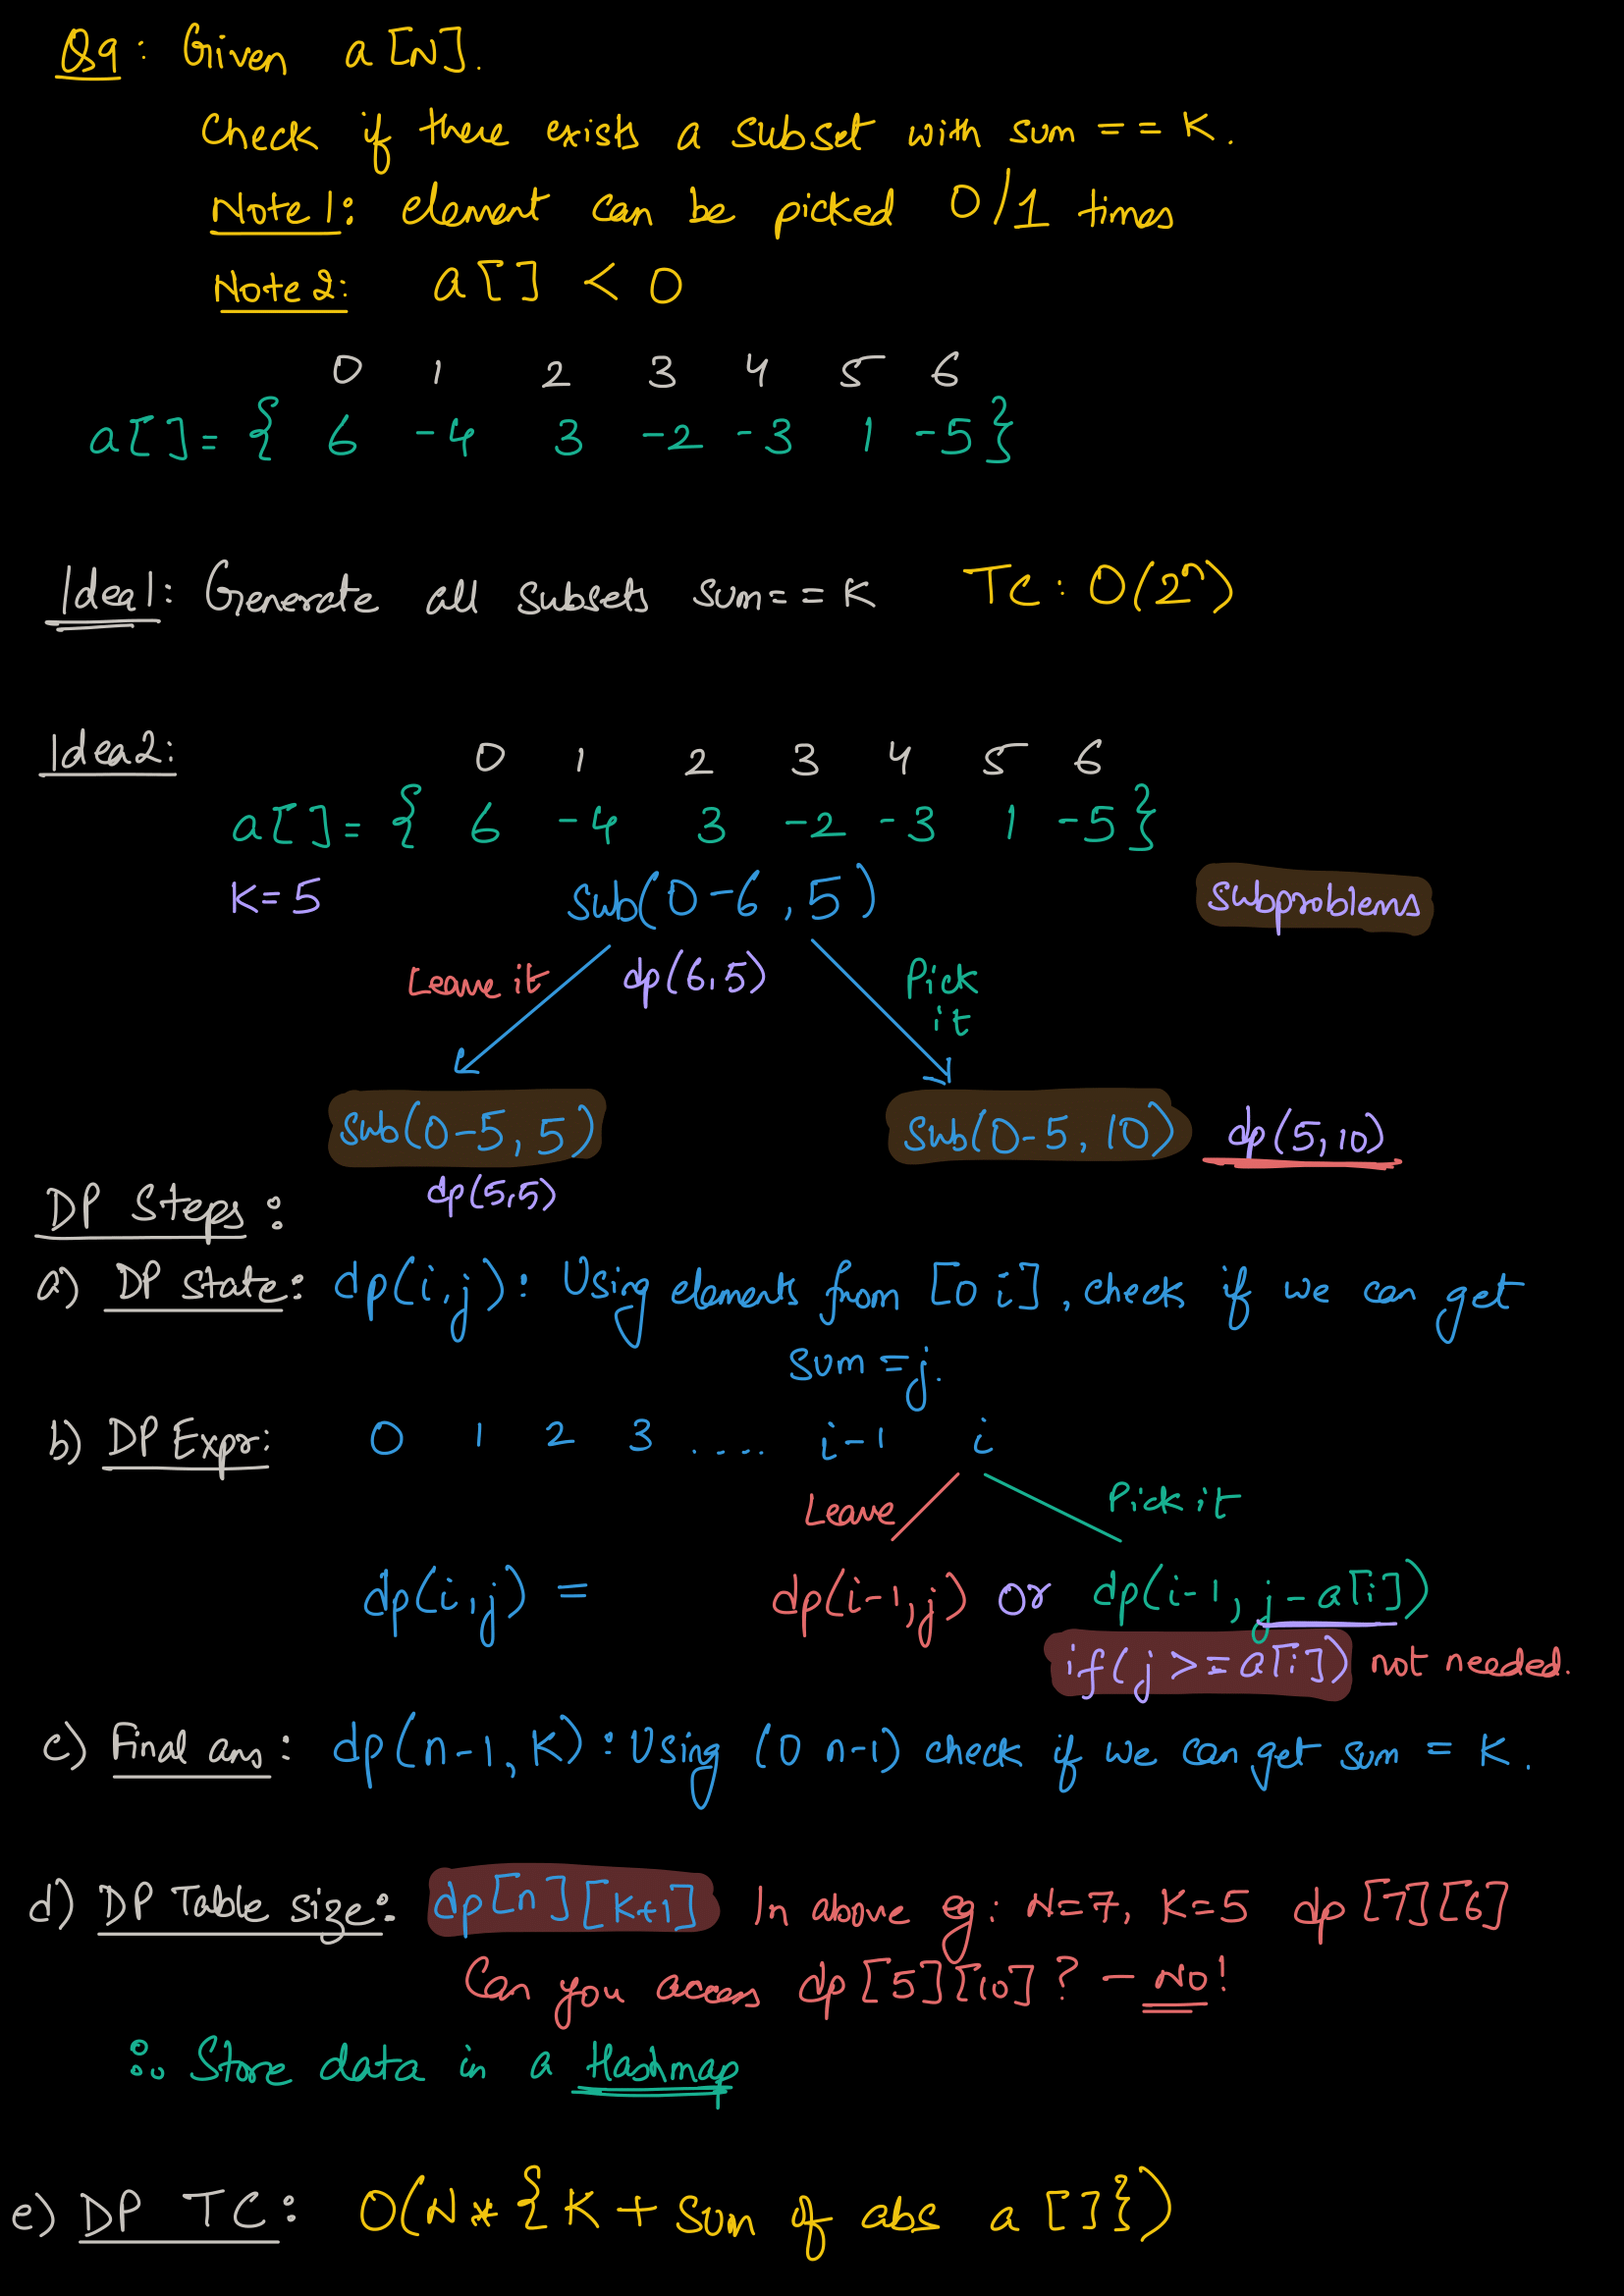 Q9: Given a[N].
Check if there exists a subset with sum == K.
Note1: element can be picked 0/1 times
Note2: a[] < 0
0 1 2 3 4 5 6
a[]= { 6 -4 3 -2 -3 1 -5}
Idea1: Generate all subsets sum== K TC: O(2^n)
Idea2: 0 1 2 3 4 5 6
a[]= { 6 -4 3 -2 -3 1 -5}
K=5 sub(0-6,5) subproblems
Leave it dp(6,5) Pick
it
sub(0-5,5) sub(0-5,10) dp(5,10)
dp(5,5)
DP Steps:
a) DP state: dp(i,j): Using elements from [0 i], check if we can get
sum =j.
b) DP Expr: 0 1 2 3 .... i-1 i
Leave Pick it
dp(i,j) = dp(i-1,j) or dp(i-1, j-a[i])
if(j>=a[i]) not needed.
c) Final ans: dp(n-1, K): Using (0 n-1) check if we can get sum = K.
d) DP Table size: dp[n][K+1] In above eg: N=7, K=5 dp[7][6]
Can you access dp[5][10]? - No!
∴ Store data in a Hashmap
e) DP TC: O(N*{K+ Sum of abs a[]})